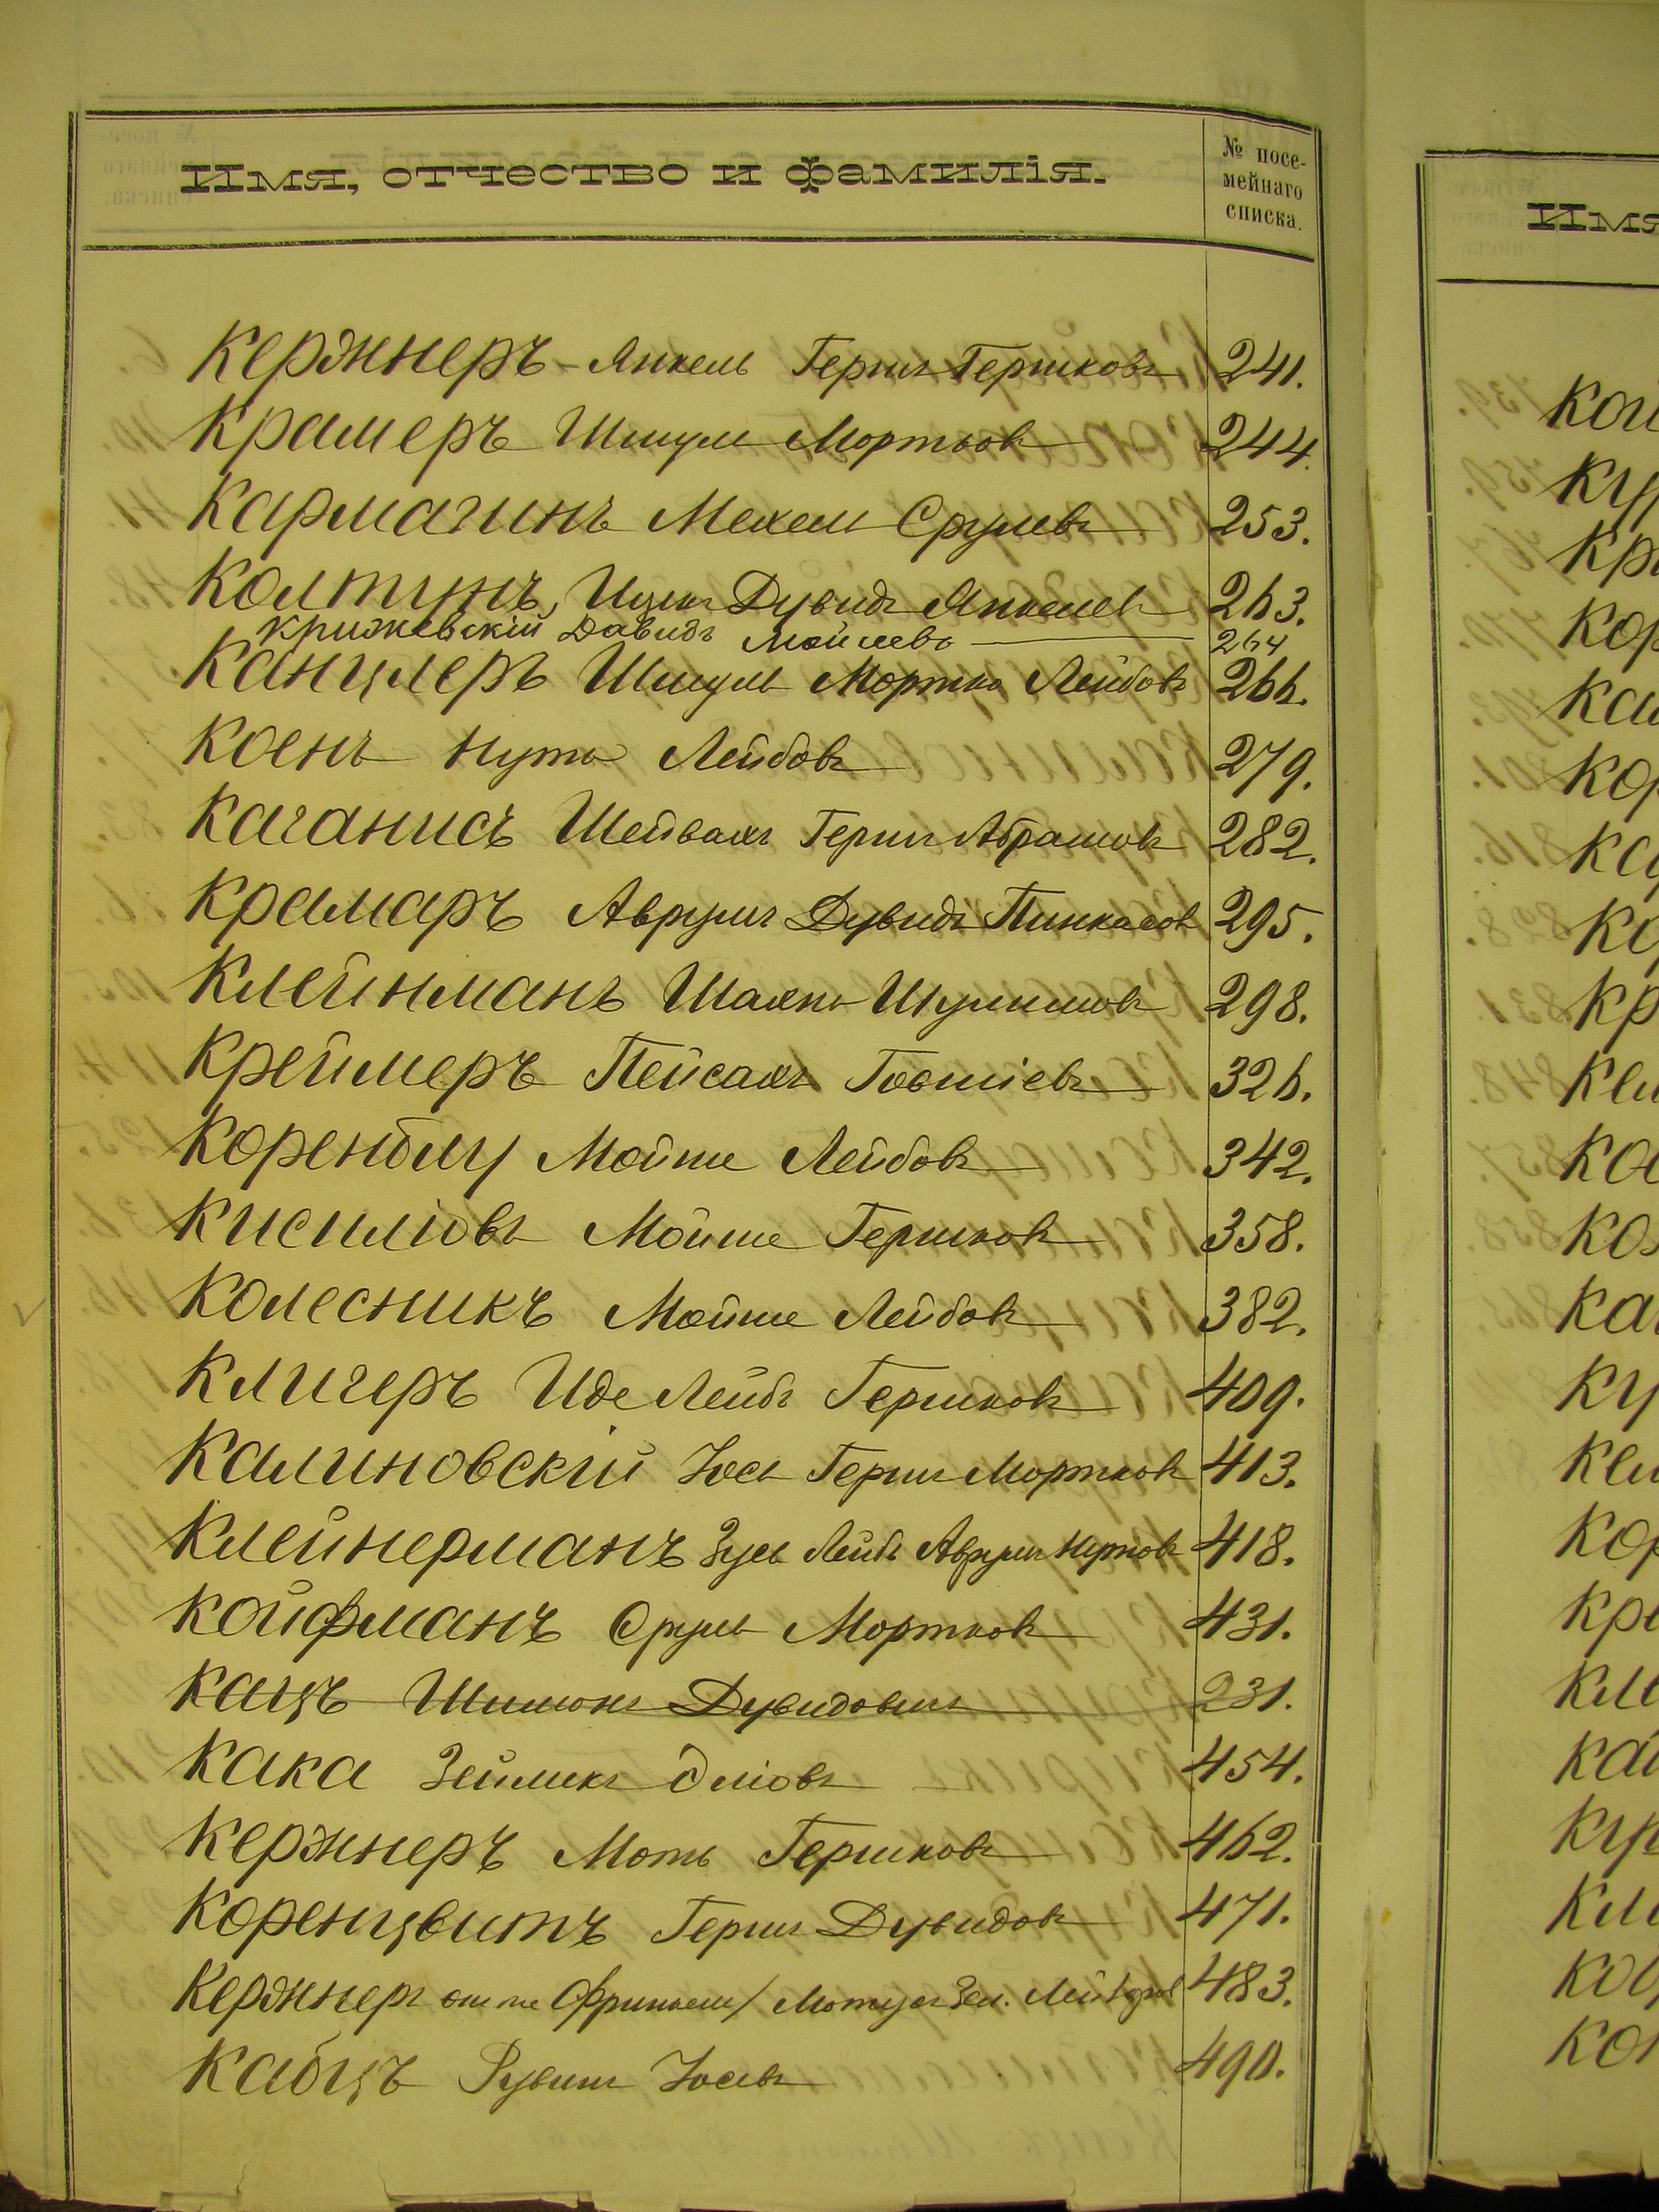 Имя, отчество и фамилія.
№ посе-
мейнаго
списка.
Имя
Кержнеръ - Янкель Гершъ Гершковъ 241.
Крамеръ Шмуль Мортковъ 244.
Кармагинъ Мехель Срулевъ 253.
Колтунъ, Ицекъ Дувидъ Янкелевъ 263.
Крижевскій Давидъ Мойшевъ 264
Канцлеръ Шмуль Мортко Лейбовъ 266.
Коенъ Нута Лейбовъ 279.
Каганисъ Шейвахъ Гершъ Абрамовъ 282.
Крамаръ Аврумъ Дувидъ Пинкасовъ 295.
Клейнманъ Шахно Шулимовъ 298.
Креймеръ Пейсахъ Говшіевъ 326.
Коренблу Мойше Лейбовъ 342.
Кисиліовъ Мойше Гершковъ 358.
Колесникъ Мойше Лейбовъ 382.
Клигеръ Иде Лейбъ Гершковъ 409.
Калиновскій Іось Гершъ Мортковъ 413.
Клейнерманъ Зусь Лейбъ Аврумъ Нутовъ 418.
Койфманъ Сруль Мортковъ 431.
Кацъ Шимонъ Дувидовичъ 231.
Кака Зейликъ Эліовъ 454.
Кержнеръ Моть Гершковъ 462.
Коренцвитъ Гершъ Дувидовъ 471.
Кержнеръ Мотусъ Зел. 483.
Кабцъ Рувинъ Іосевъ 490.